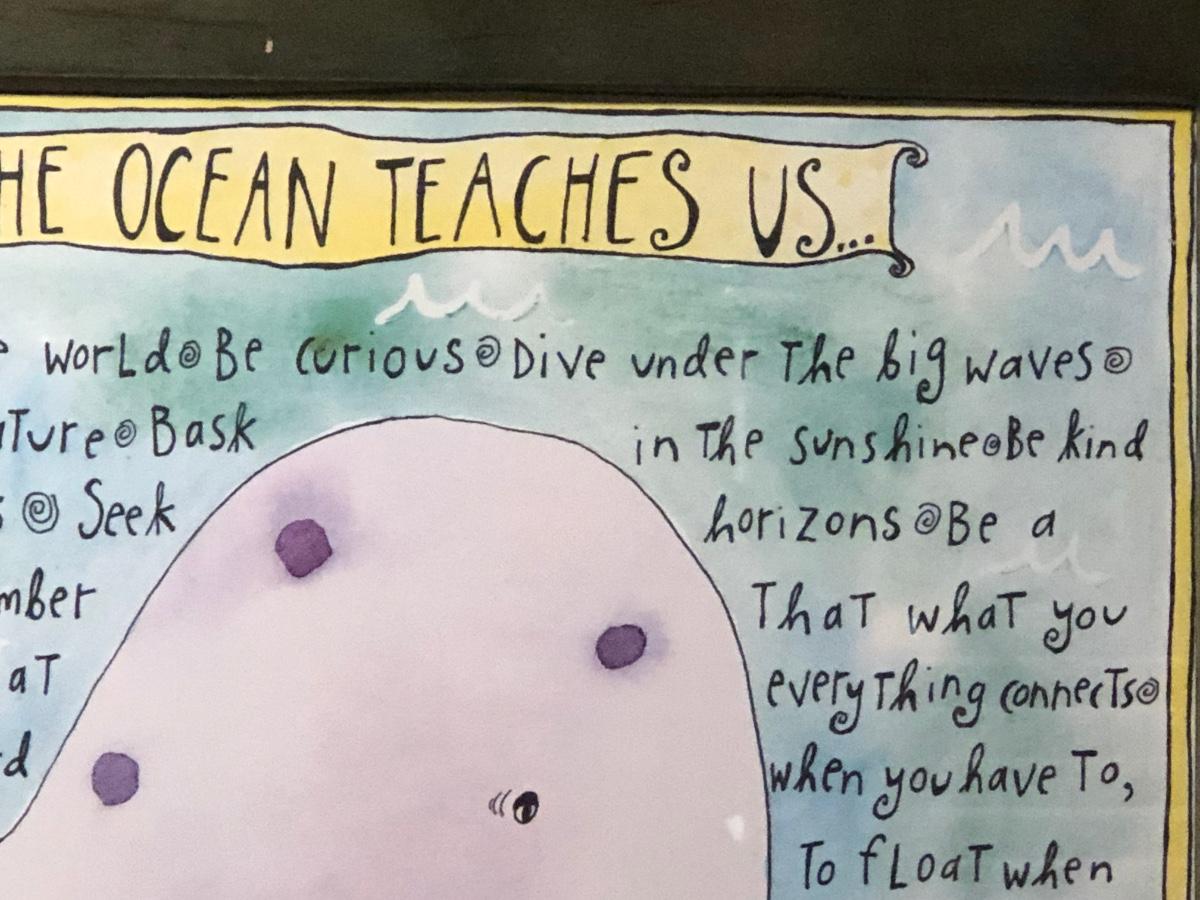 HE OCEAN TEACHES US...
world Be curious Dive under The big waves
Ture Bask in The sunshine Be kind
s Seek horizons Be a
mber ThaT whaT you
aT everyThing connecTs
d when you have To,
To fLoaT when